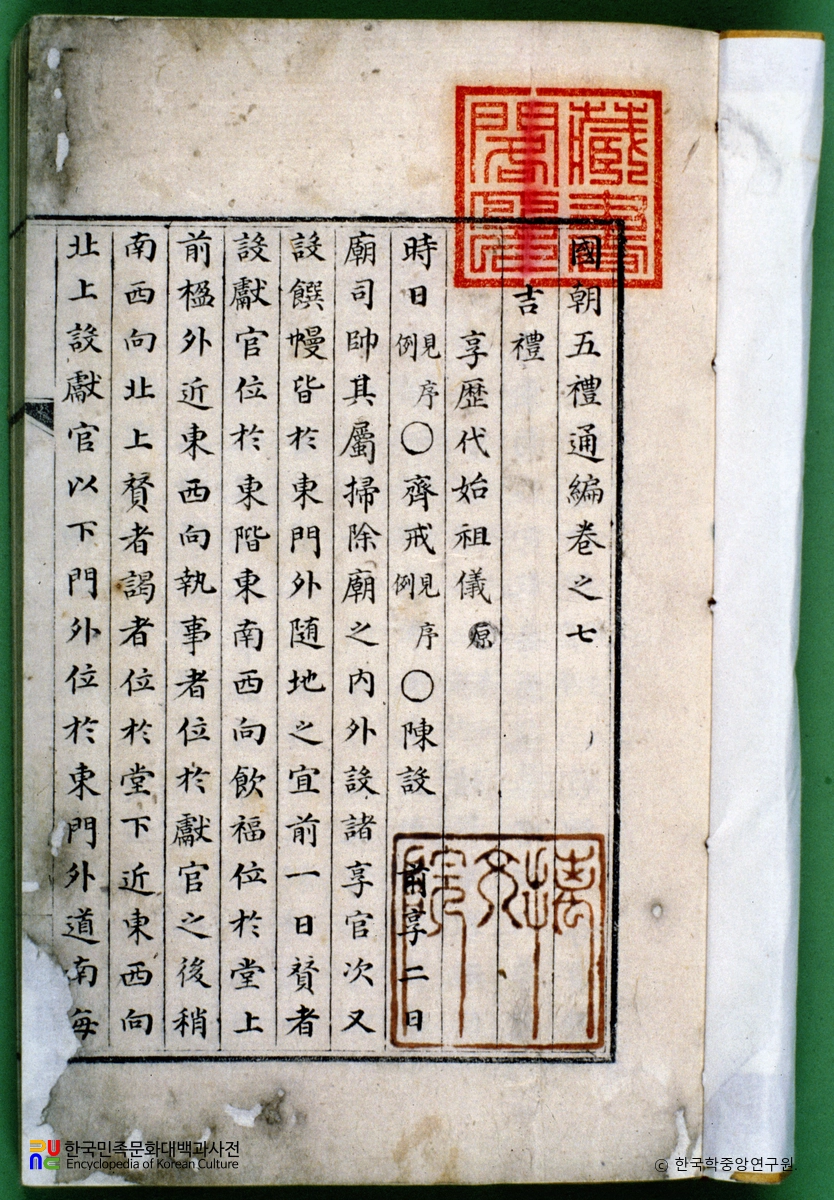 國朝五禮通編卷之七
吉禮
享歷代始祖儀 原
時日見序例○齊戒見序例○陳設前享二日
廟司帥其屬掃除廟之内外設諸享官次又
設饌幔皆於東門外隨地之宜前一日賛者
設獻官位於東階東南西向飮福位於堂上
前楹外近東西向執事者位於獻官之後稍
南西向北上賛者謁者位於堂下近東西向
北上設獻官以下門外位於東門外道南每
藏書
閣印
한국민족문화대백과사전
Encyclopedia of Korean Culture
ⓒ 한국학중앙연구원